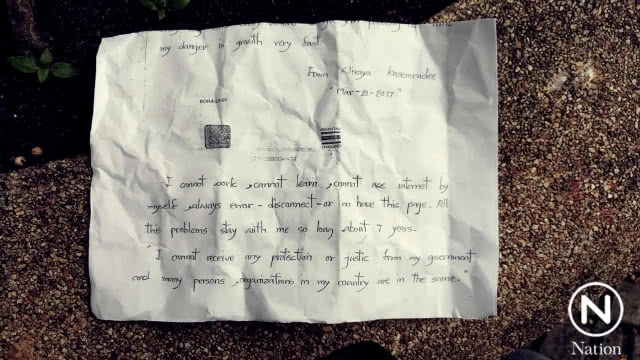 my danger is growth very fast
From
"Mar-21-2017"
I cannot work , cannot learn , cannot use internet by
myself , always error - disconnect - or no have this page. All
this problems stay with me so long about 7 years.
"I cannot receive any protection or justic from my government
and many persons , organizations in my country are in the same."
N
Nation